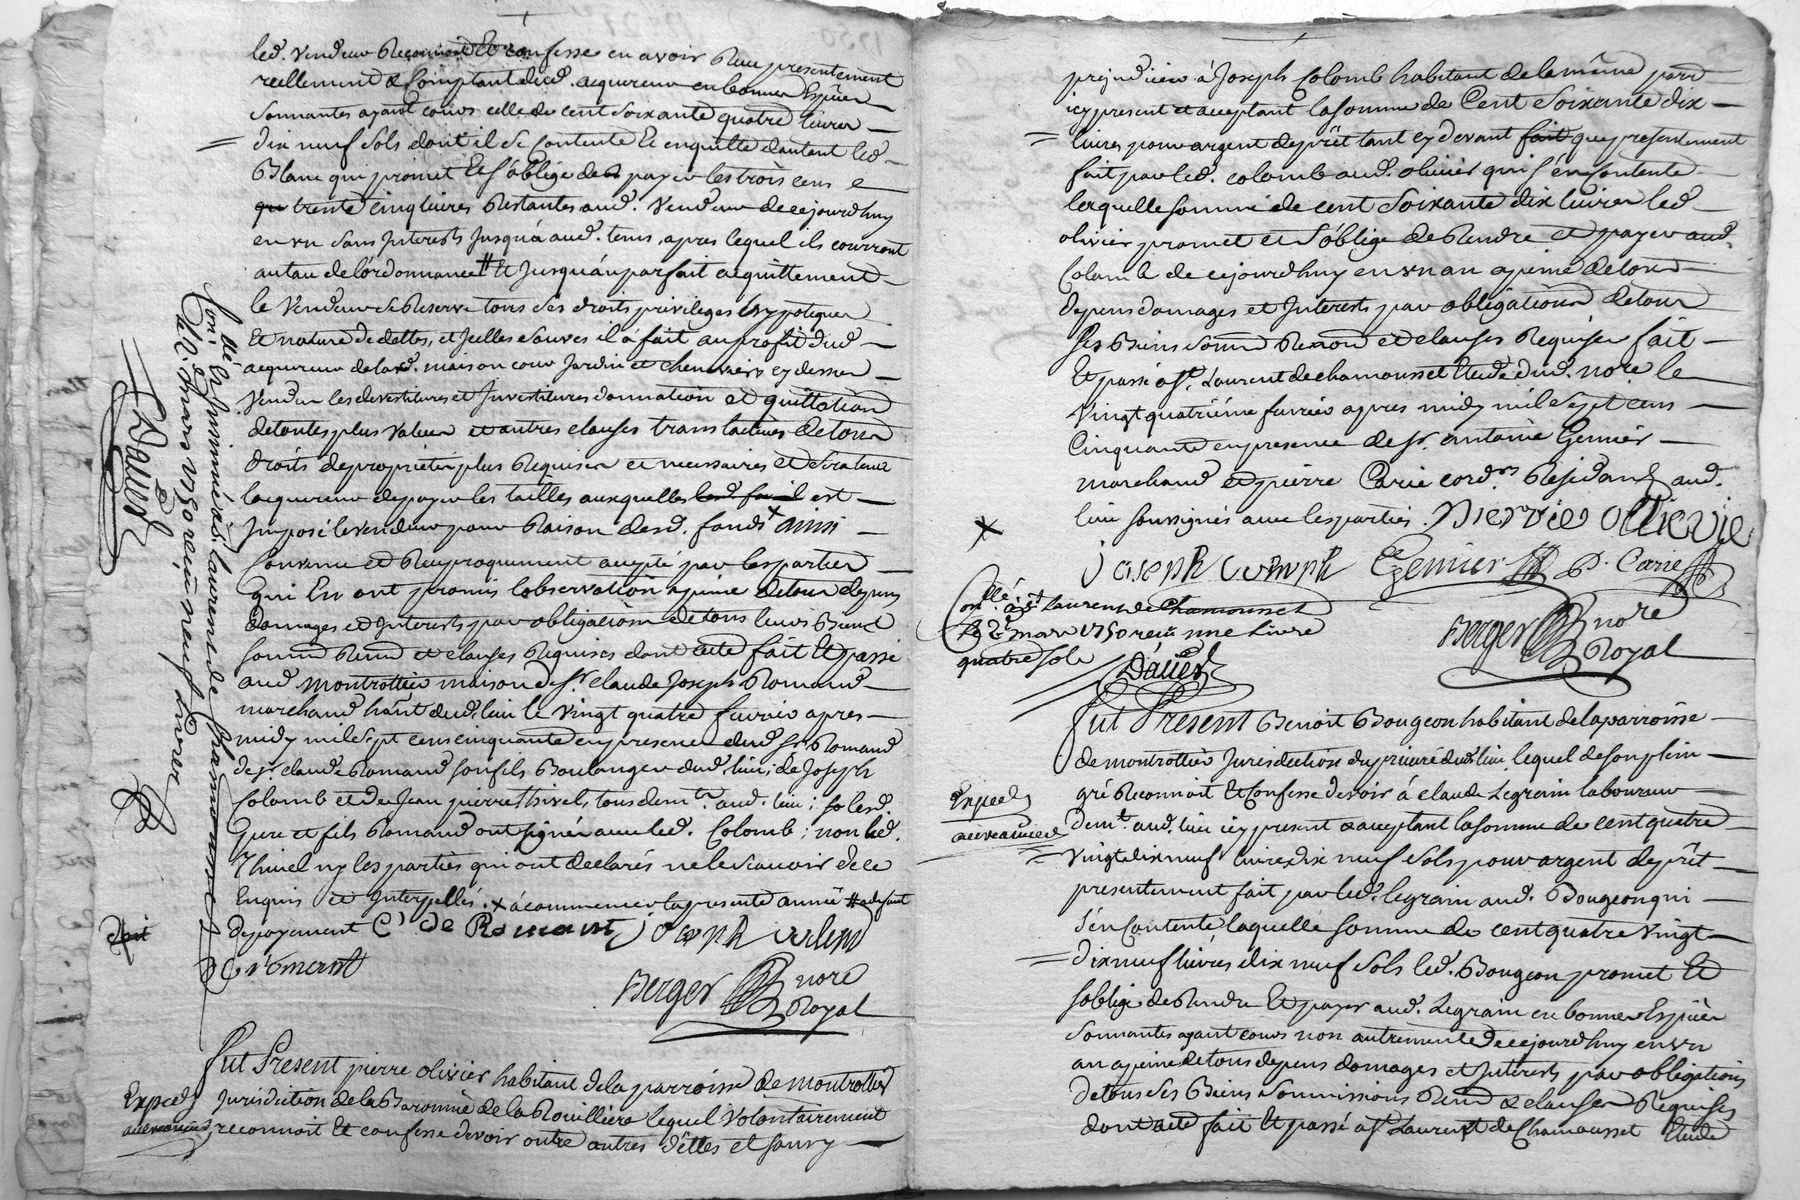 led. vendeur Reconnoit Et confesse en avoir Reçu presentement
reellement & Comptant dud. acquereur en bonnes Espèces
Sonnantes ayant cours celle de Cent Soixante quatre livres
dix neuf Sols dont il Se Contente Et en quitte d'autant led.
Blanc qui promet Et s'oblige de payer les trois cens
trente cinq livres Restantes aud. Vendeur de cejourdhuy
en un Sans Interests Jusqu'a aud. tems, apres lequel ils courront
au tau de l'ordonnance # Et Jusqu'a un parfait acquittement
le Vendeur Se Reserve tous Ses droits privileges hypoteques
Et nature de dettes, et Jcelles Sauves il a fait au profit dud.
acquereur de lad. maison cour Jardin et cheneviere cy dessus
Vendus les devestitures et Investitures donnation et quittation
de toutes plus Values et autres clauses translatives de tous
droits de proprieté plus Requises et necessaires et Sera tenu
lacquereur de payer les tailles auxquelles est
Imposé le vendeur pour Raison desd. fonds x ainsi
Convenu et Reciproquement accepté par les parties
qui En ont promis l'observation a peine de tous depens
Domages et Interests par obligation de tous leurs Biens
Soum Renon et clauses Requises dont acte fait Et passé
aud. Montrottier maison de Sr. claude Joseph Romand
marchand habt. dud. lieu le vingt quatre fevrier apres
midy mil Sept cens cinquante en presence dud. Sr. Romand
de Sr. claude Romand Son fils Boulanger dud. lieu, de Joseph
Colomb et de Jean pierre Thivel, tous demts. aud. lieu; Lesd.
pere et fils Romand ont signé avec led. Colomb; non led.
Thivel ny les parties qui ont declarés ne le Scavoir de ce
Enquis et Interpellés. x a commencer la presente année # a defaut
de payement C' de Romant Joseph Colomb
Romant
Berger nore
Royal
Conté & Insinué a St. Laurent de Chamousset
le 2e. mars 1750 reçu neuf livres
Dauer
Fut Present pierre olivier habitant de la parroisse de Montrottier
Exped Jurisdiction de la Baronnie de la Rouilliere lequel Volontairement
reconnoit Et confesse devoir outre autres dettes et Sans y
prejudicier à Joseph Colomb habitant de la même parr
icy present et acceptant la Somme de Cent Soixante dix
livres pour argent de prêt tant cy devant fait que presentement
fait par led. Colomb aud. olivier qui s'en Contente
laquelle Somme de cent Soixante dix livres led.
olivier promet et S'oblige de Rendre et payer aud.
Colomb de cejourdhuy en un an a peine de tous
depens domages et Interests par obligation de tous
Ses Biens Soum Renon et clauses Requises fait
Et passé a St. Laurent de chamousset Etude dud. nore le
vingt quatrième fevrier apres midy mil Sept cens
Cinquante en presence de Sr. antoine Gemier
marchand et pierre Carie cordr. Residans aud.
lieu soussignés avec les parties. Pierre ollievie
Joseph Colomb Gemier P. Carie
Berger nore
Royal
Conllé. à St. Laurens de Chamousset
le 2e. mars 1750 reçu une Livre
quatre Sols
Dauer
Fut Present Benoit Bougeon habitant de la parroisse
de montrottier Jurisdiction du prieuré dud. lieu, lequel de son plein
gré Reconnoit Et Confesse devoir à claude Legrain laboureur
Exped
demt. aud. lieu icy present & acceptant la Somme de cent quatre
Vingt dix neuf livres dix neuf Sols pour argent de prêt
presentement fait par led. Legrain aud. Bougeon qui
S'en Contente laquelle Somme de cent quatre Vingt
dix neuf livres dix neuf Sols led. Bougeon promet Et
s'oblige de Rendre Et payer aud. Legrain en bonnes Espèces
Sonnantes ayant cours non autrement de cejourdhuy en un
an a peine de tous depens domages et Interests par obligations
de tous Ses Biens Soumissions Renon & clauses Requises
dont acte fait Et passé a St. Laurent de Chamousset Etude